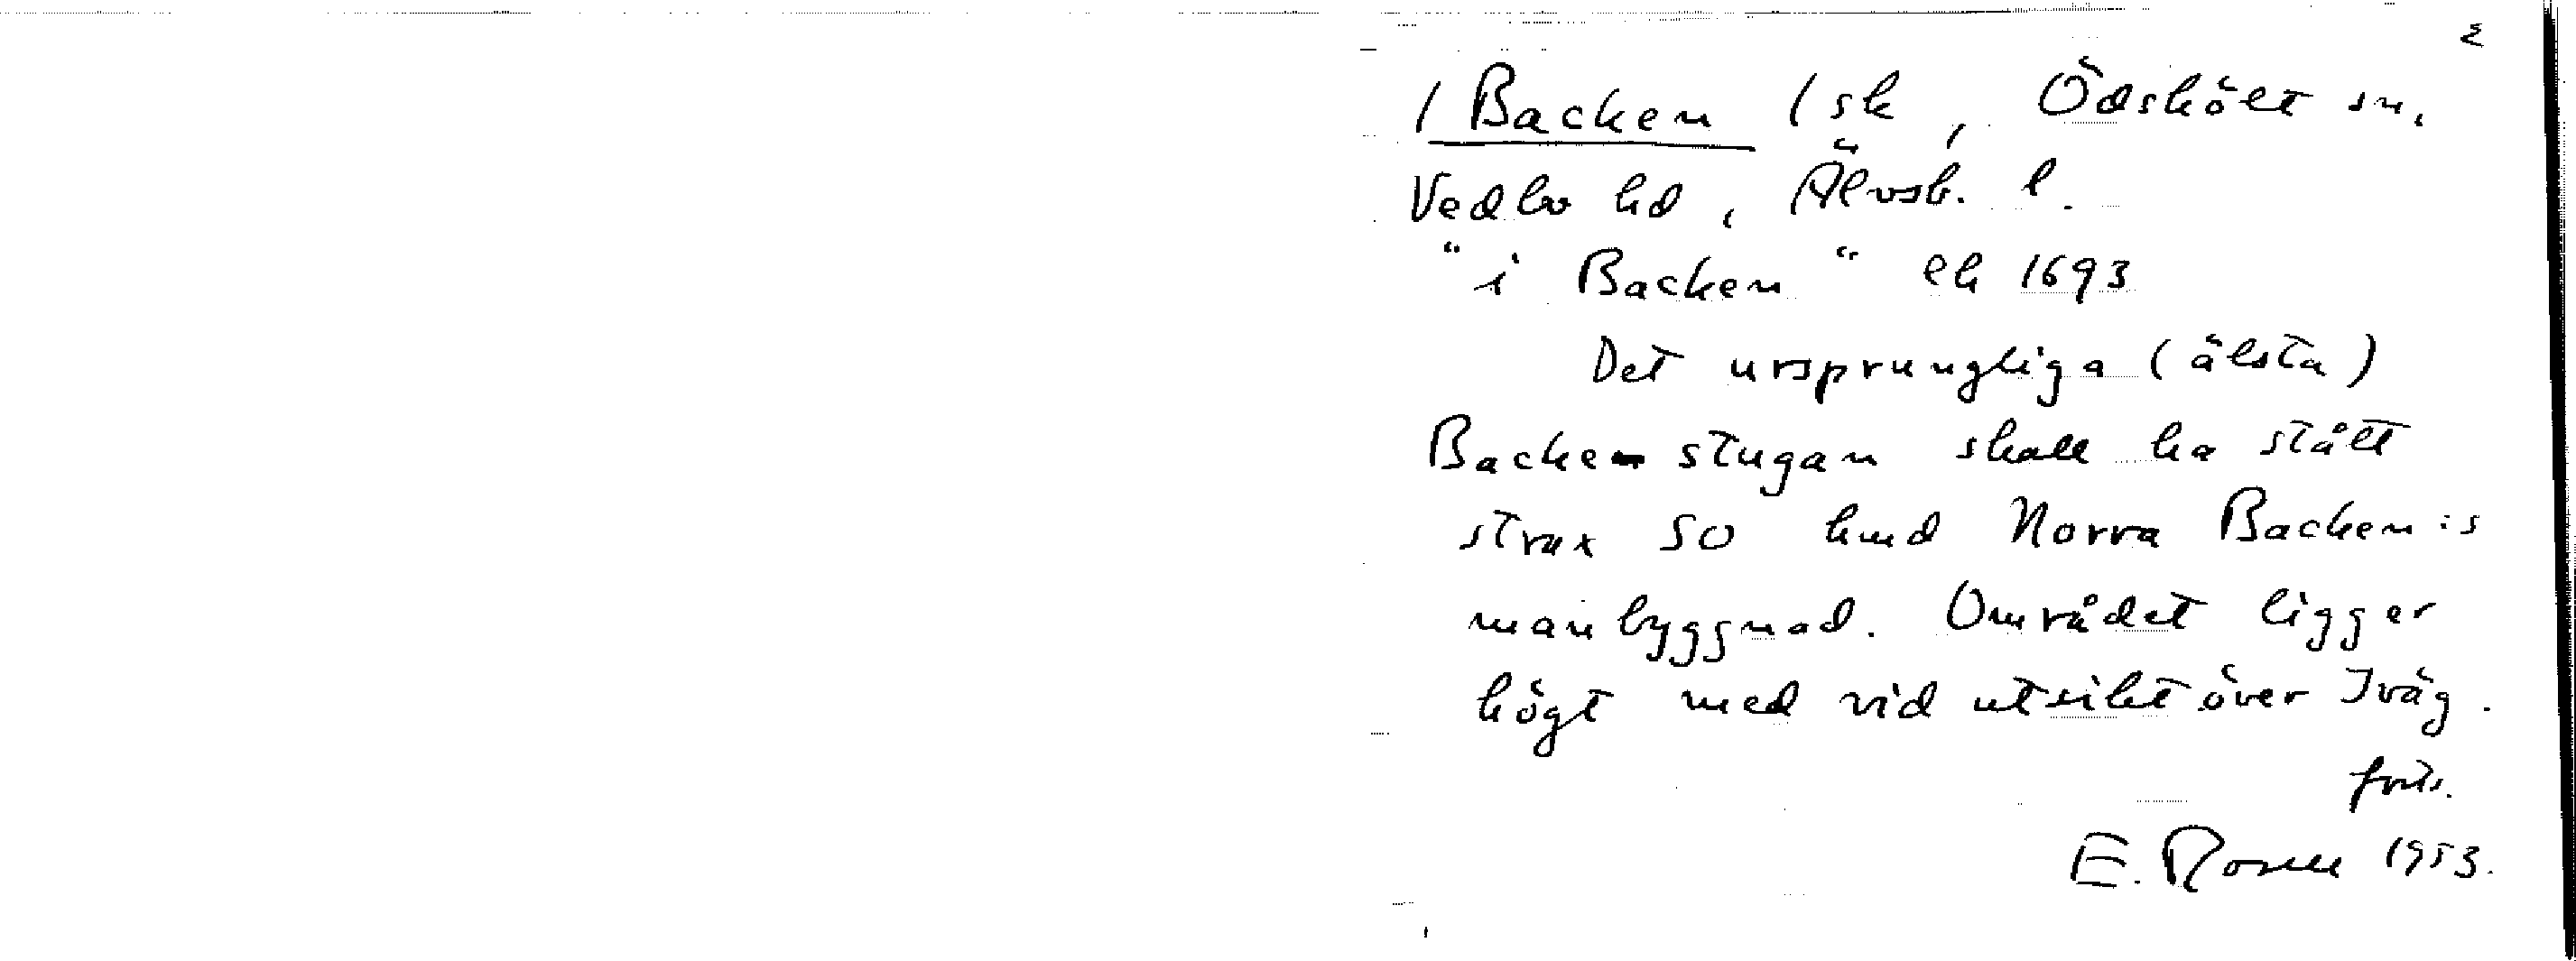 2
/ Backen / sk, Ödskölt sn,
Vedbo hd, Älvsb. l.
"i Backen" lk 1693
Det ursprungliga (älsta)
Backe stugan skall ha stått
strax SO
Norra Backen:s
manbyggnad. Området ligger
högt med vid utsikt över Iväg.
E. 1953.